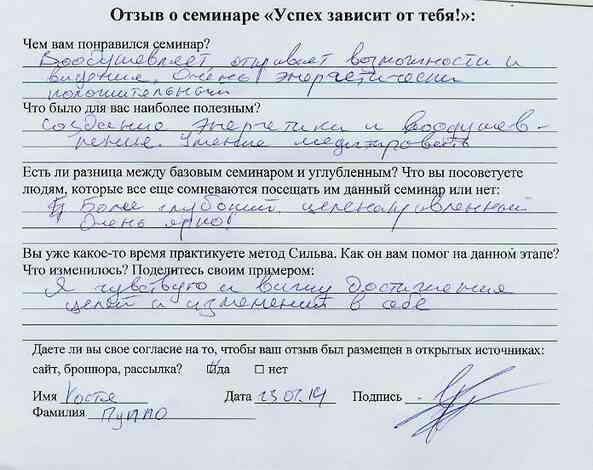 Отзыв о семинаре «Успех зависит от тебя!»:
Чем вам понравился семинар?
Воодушевляет открывает возможности и
видения. Очень энергетически
положительный
Что было для вас наиболее полезным?
Создание энергетики и воодушев-
ление. Умение медитировать
Есть ли разница между базовым семинаром и углубленным? Что вы посоветуете
людям, которые все еще сомневаются посещать им данный семинар или нет:
Более глубокий, целенаправленный
Очень ярко!
Вы уже какое-то время практикуете метод Сильва. Как он вам помог на данном этапе?
Что изменилось? Поделитесь своим примером:
Я чувствую и вижу достижения
целей и изменения в себе
Даете ли вы свое согласие на то, чтобы ваш отзыв был размещен в открытых источниках:
сайт, брошюра, рассылка? да нет
Имя Костя Дата 23.01.14 Подпись
Фамилия